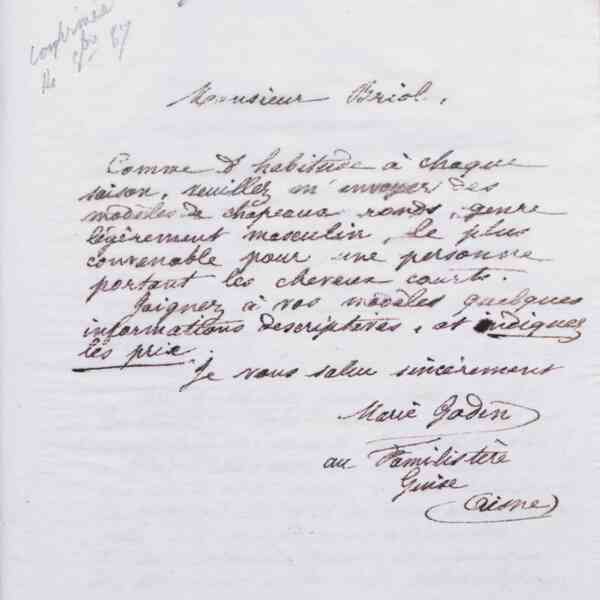 confirmée
Monsieur Briol.
Comme d'habitude à chaque
saison, veuillez m'envoyer des
modèles de chapeaux ronds, genre
légèrement masculin, le plus
convenable pour une personne
portant les cheveux courts.
Joignez à vos modèles quelques
informations descriptives, et indiquez
les prix.
Je vous salue sincèrement
Marie Godin
au Familistère
Guise
(Aisne)